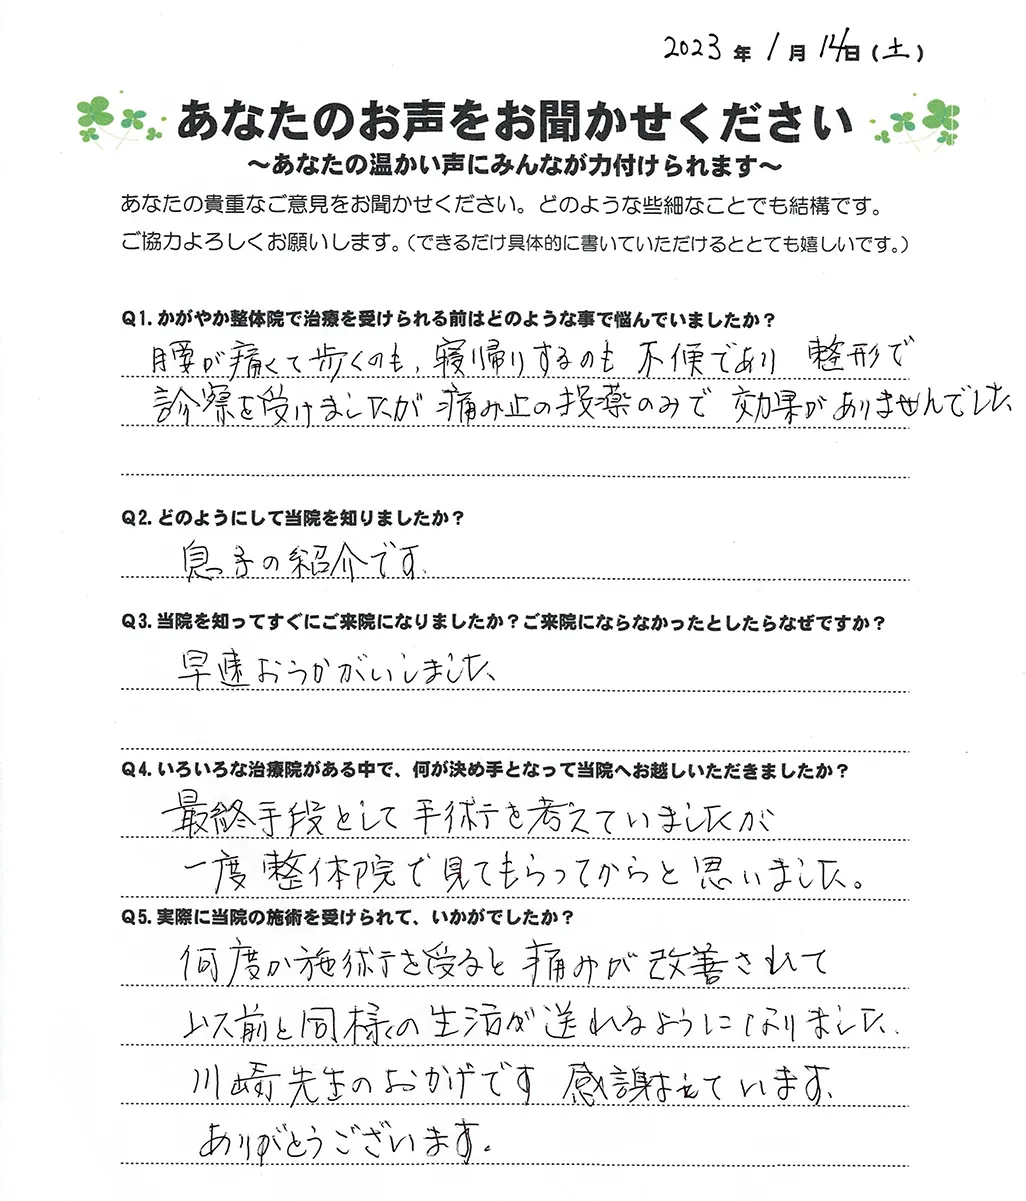 2023年 1月 14日(土)
あなたのお声をお聞かせください
～あなたの温かい声にみんなが力付けられます～
あなたの貴重なご意見をお聞かせください。どのような些細なことでも結構です。
ご協力よろしくお願いします。(できるだけ具体的に書いていただけるととても嬉しいです。)
Q1. かがやか整体院で治療を受けられる前はどのような事で悩んでいましたか？
腰が痛くて歩くのも、寝帰りするのも 不便であり 整形で
診察を受けましたが 痛み止の投薬のみで 効果がありませんでした
Q2. どのようにして当院を知りましたか？
息っ子の紹介です。
Q3. 当院を知ってすぐにご来院になりましたか？ご来院にならなかったとしたらなぜですか？
早速おうかがいしました。
Q4. いろいろな治療院がある中で、何が決め手となって当院へお越しいただきましたか？
最終手段として 手術を考えていましたが
一度 整体院で見てもらってからと 思いました。
Q5. 実際に当院の施術を受けられて、いかがでしたか？
何度か施術を受ると 痛みが 改善されて
以前と同様の生活が送れるようになりました。
川崎先生のおかげです 感謝ましています。
ありがとうございます。